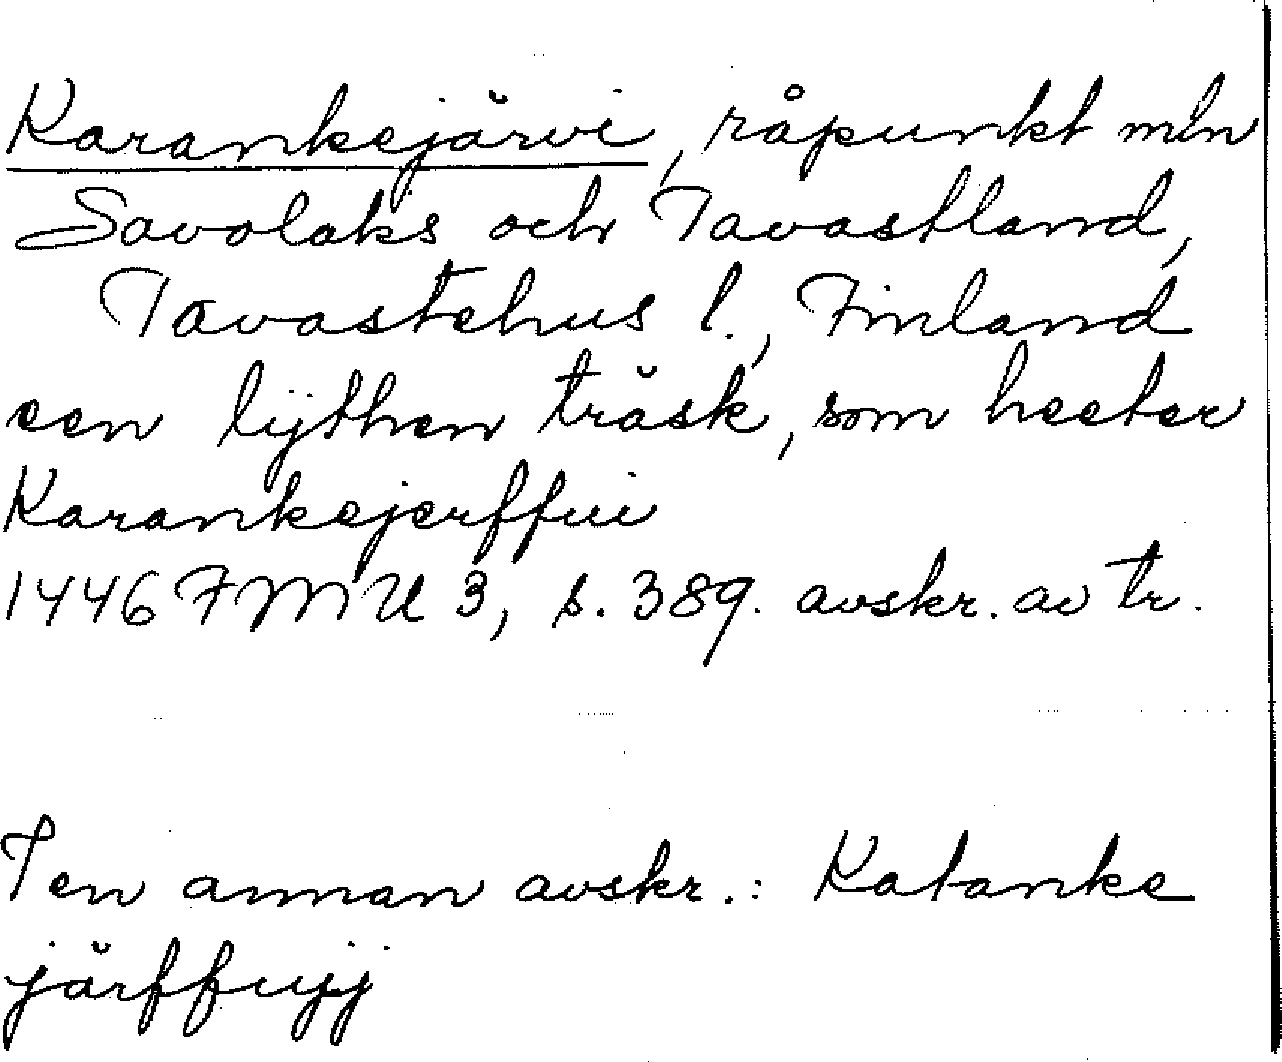 Karankejärvi, råpunkt mln
Savolaks och Tavastland,
Tavastehus l., Finland
een lijthen träsk, som heeter
Karankejerffui
1446 FMU 3, s. 389. avskr. av tr.
I en annan avskr.: Katanke
järffuijj